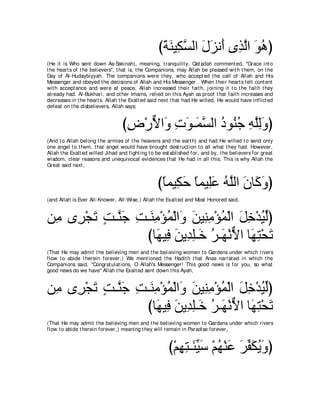 (هُوَ الَّذِى أَنزَلَ السَّكِينَةَ)
(He it is Who sent down As-Sakinah), meaning, tranquility. Qatadah commented, "Grace into
the hearts of the believers", that is, the Companions, may Allah be pleased with them, on the
Day of Al-Hudaybiyyah. The companions were they, who accepted the call of Allah and His
Messenger and obeyed the decisions of Allah and His Messenger . When their hearts felt content
with acceptance and were at peace, Allah increased their faith, joining it to the faith they
already had. Al-Bukhari, and other Imams, relied on this Ayah as proof that faith increases and
decreases in the hearts. Allah the Exalted said next that had He willed, He would have inflicted
defeat on the disbelievers, Allah says;
(وَلِلَّهِ جُنُودُ السَّمَـوَتِ وَالاٌّرْضِ)
(And to Allah belong the armies of the heavens and the earth) and had He willed to send only
one angel to them, that angel would have brought destruction to all what they had. However,
Allah the Exalted willed Jihad and fighting to be established for, and by, the believers for great
wisdom, clear reasons and unequivocal evidences that He had in all this. This is why Allah the
Great said next,
(وَكَانَ اللَّهُ عَلِيماً حَكِيماً)
(and Allah is Ever All-Knower, All-Wise.) Allah the Exalted and Most Honored said,
(لِّيُدْخِلَ الْمُؤْمِنِينَ وَالْمُؤْمِنَـتِ جَنَّـتٍ تَجْرِى مِن
تَحْتِهَا الاٌّنْهَـرُ خَـلِدِينَ فِيهَا)
(That He may admit the believing men and the believing women to Gardens under which rivers
flow to abide therein forever,) We mentioned the Hadith that Anas narrated in which the
Companions said, "Congratulations, O Allah's Messenger! This good news is for you, so what
good news do we have" Allah the Exalted sent down this Ayah,
(لِّيُدْخِلَ الْمُؤْمِنِينَ وَالْمُؤْمِنَـتِ جَنَّـتٍ تَجْرِى مِن
تَحْتِهَا الاٌّنْهَـرُ خَـلِدِينَ فِيهَا)
(That He may admit the believing men and the believing women to Gardens under which rivers
flow to abide therein forever,) meaning they will remain in Paradise forever,
(وَيُكَفِّرَ عَنْهُمْ سَيِّئَـتِهِمْ)